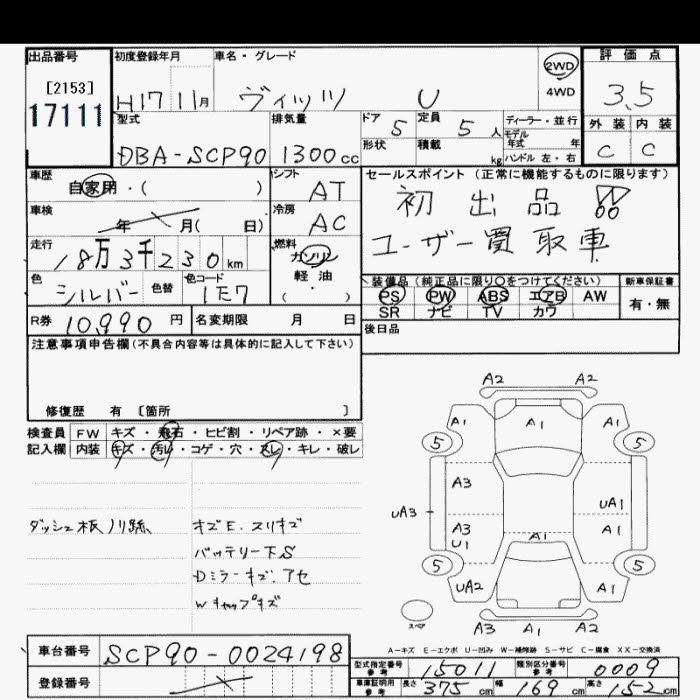 出品番号 初度登録年月 車名・グレード 2WD 評価点
[2153] 4WD
17111 H17 11月 ヴィッツ U 3.5
型式 排気量 ドア 5 定員 5人 ディーラー・並行 外装 内装
モデル年式 年
DBA-SCP90 1300cc 形状 積載 kg ハンドル 左・右 C C
車歴 シフト セールスポイント(正常に機能するものに限ります)
自家用・( ) AT 初出品!!
車検 冷房
年 月( 日) AC ユーザー買取車
走行 燃料
18万3千230km ガソリン
軽油
色 色替 色コード ・( )
シルバー 1E7
装備品(純正品に限り○をつけてください) 新車保証書
PS PW ABS エアB AW 有・無
SR ナビ TV カワ
R券 10,990円 名変期限 月 日
後日品
注意事項申告欄(不具合内容等は具体的に記入して下さい)
修復歴 有 〔箇所 〕
検査員 FW キズ・飛石・ヒビ割・リペア跡・×要
記入欄 内装 キズ・汚レ・コゲ・穴・スレ・キレ・破レ
ダッシュ板ノリ跡 キズE.スリキズ
バッテリー下S
Dミラーキズ.アセ
Wキャップキズ
A2 A2
A1 A1 A1
5 5
A3 UA1
UA3
A3 A1 A1
U1
5 5
UA2 A1
スペア
A3 A1 A2
A-キズ E-エクボ U-凹み W-補修跡 S-サビ C-腐食 XX-交換済
車台番号 SCP90-0024198
型式指定番号 参考 15011 類別区分番号 参考 0009
登録番号
車庫証明用 参考 長さ 375cm 幅 169cm 高さ 152cm